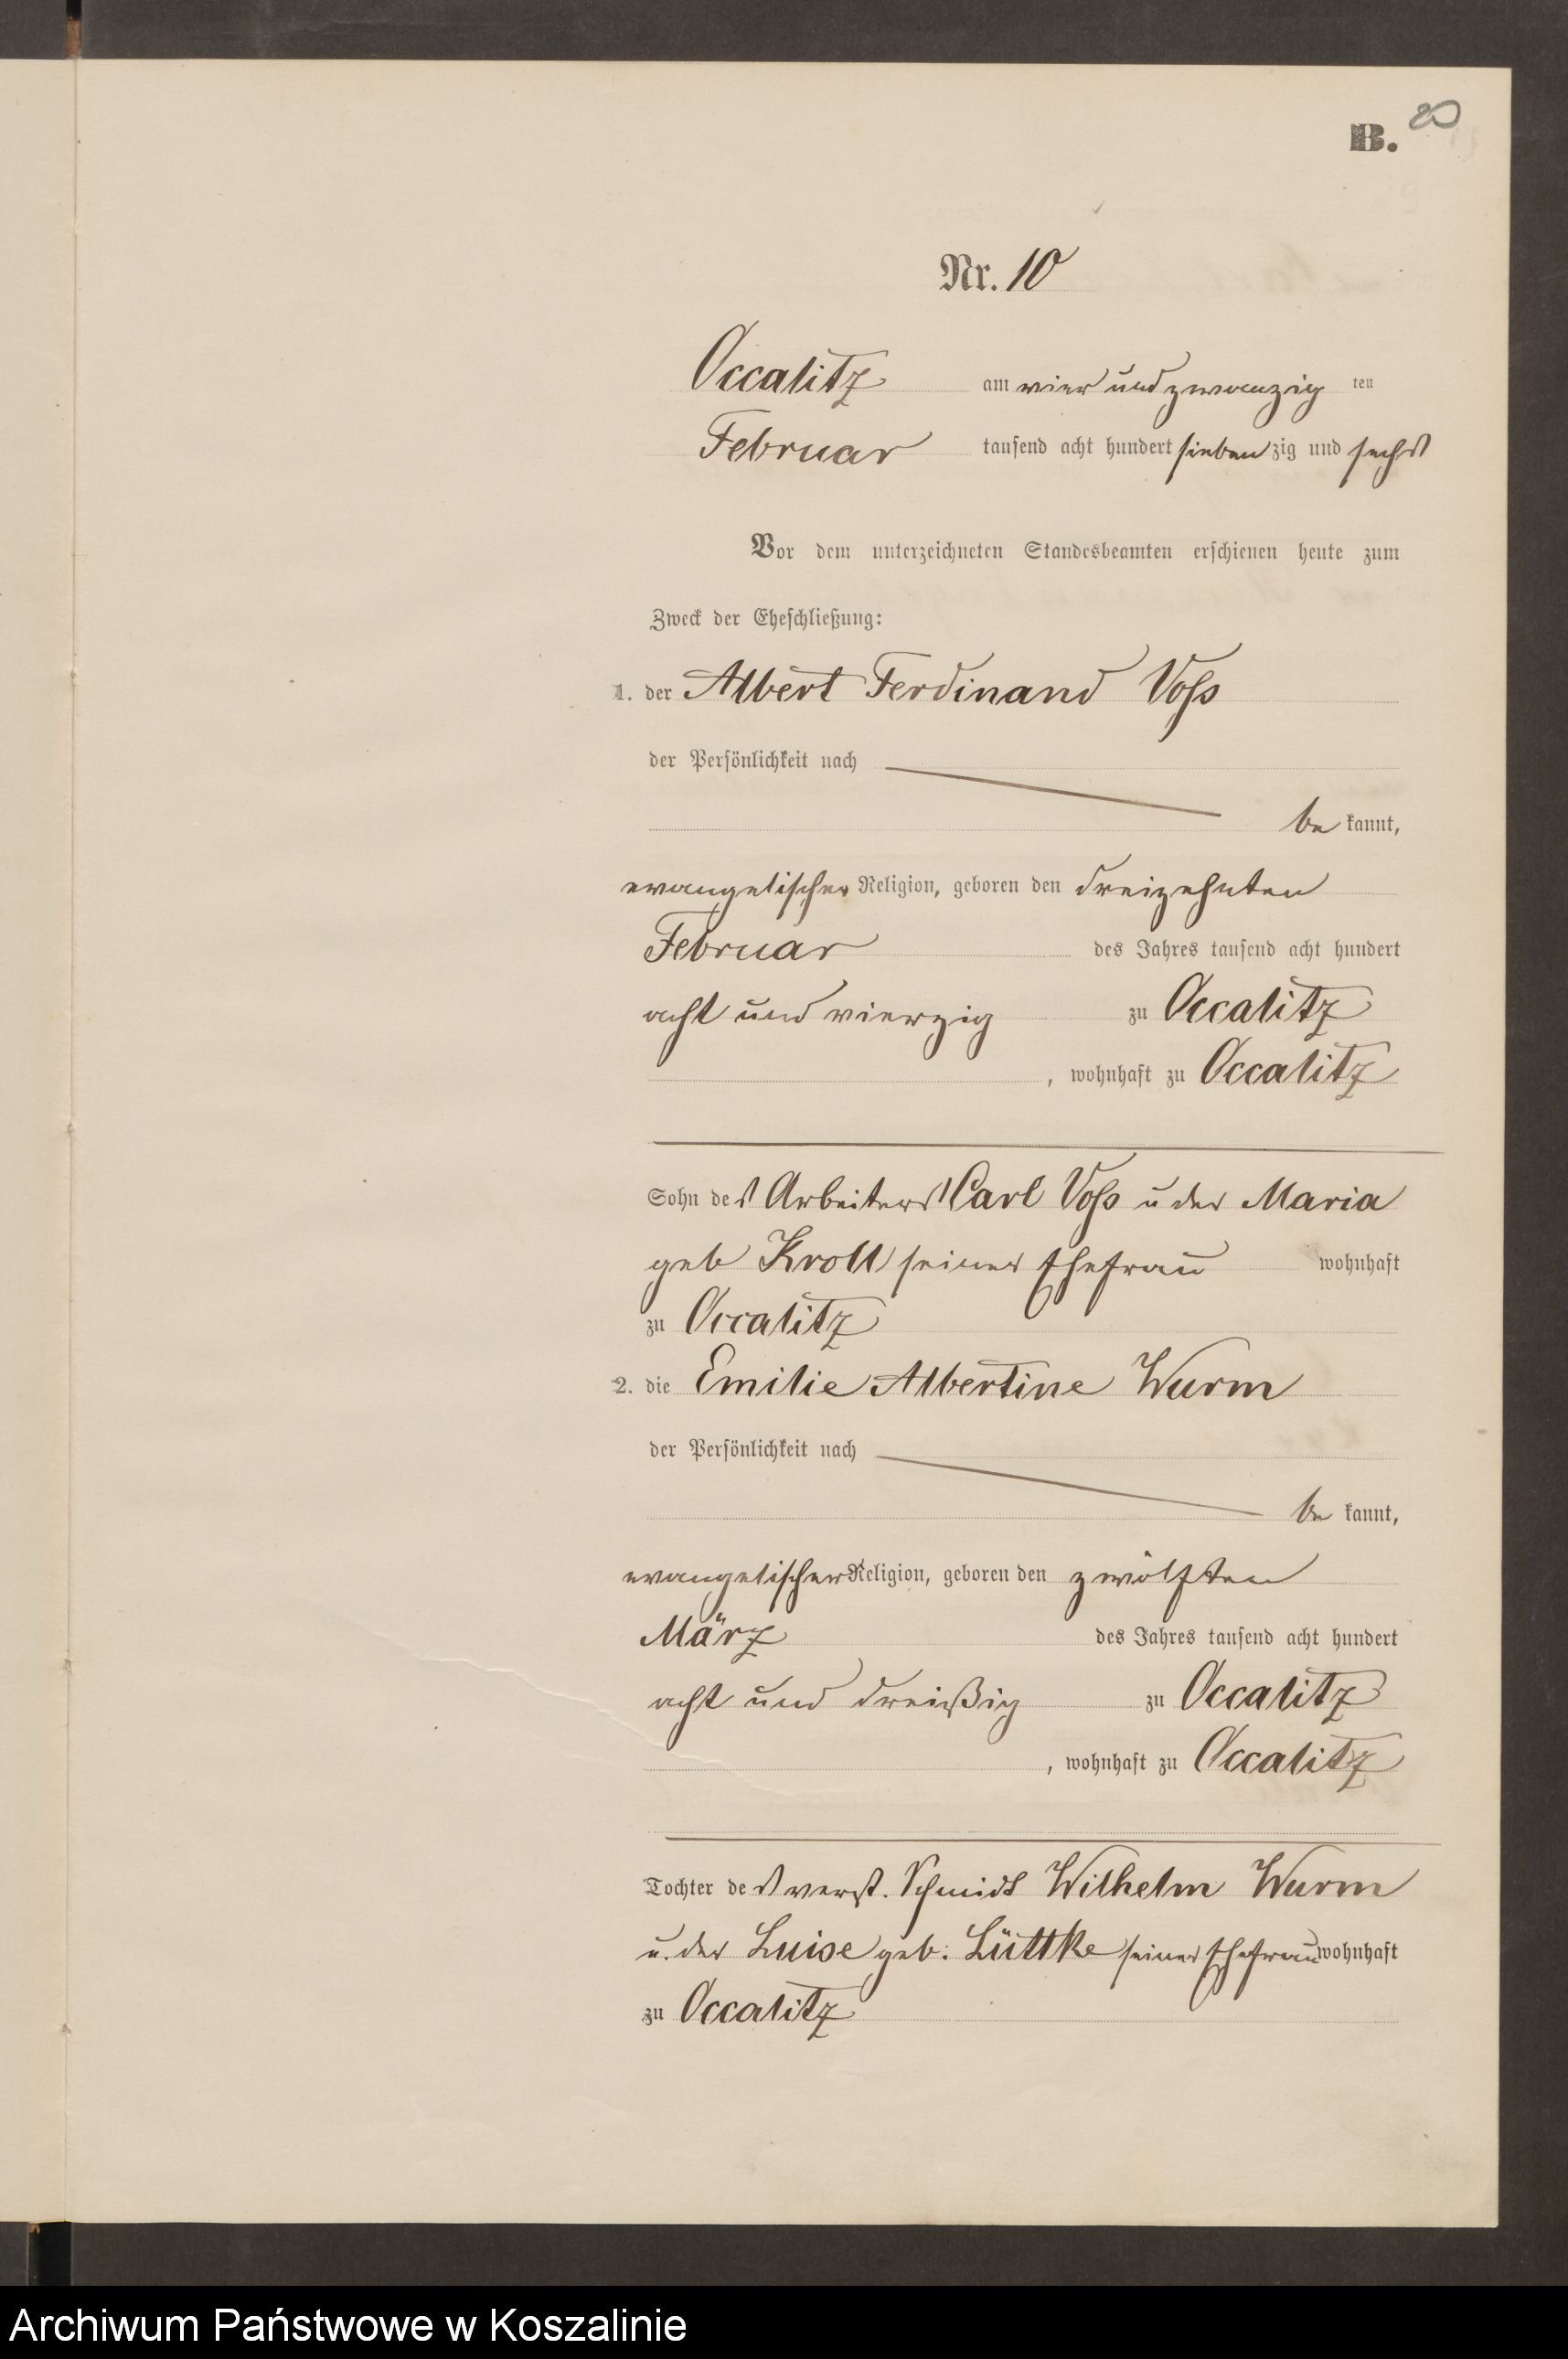 B. 20
Nr. 10
Occalitz am vier und zwanzig ten
Februar tausend acht hundert sieben zig und sechs
Vor dem unterzeichneten Standesbeamten erschienen heute zum
Zweck der Eheschließung:
1. der Albert Ferdinand Voss
der Persönlichkeit nach
be kannt,
evangelischer Religion, geboren den dreizehnten
Februar des Jahres tausend acht hundert
acht und vierzig zu Occalitz
, wohnhaft zu Occalitz
Sohn des Arbeiters Carl Voss u der Maria
geb Kroll seiner Ehefrau wohnhaft
zu Occalitz
2. die Emilie Albertine Wurm
der Persönlichkeit nach
be kannt,
evangelischer Religion, geboren den zwölften
März des Jahres tausend acht hundert
acht und dreißig zu Occalitz
, wohnhaft zu Occalitz
Tochter des verst. Schmidt Wilhelm Wurm
u. der Luise geb. Lüttke seiner Ehefrau wohnhaft
zu Occalitz
Archiwum Państwowe w Koszalinie